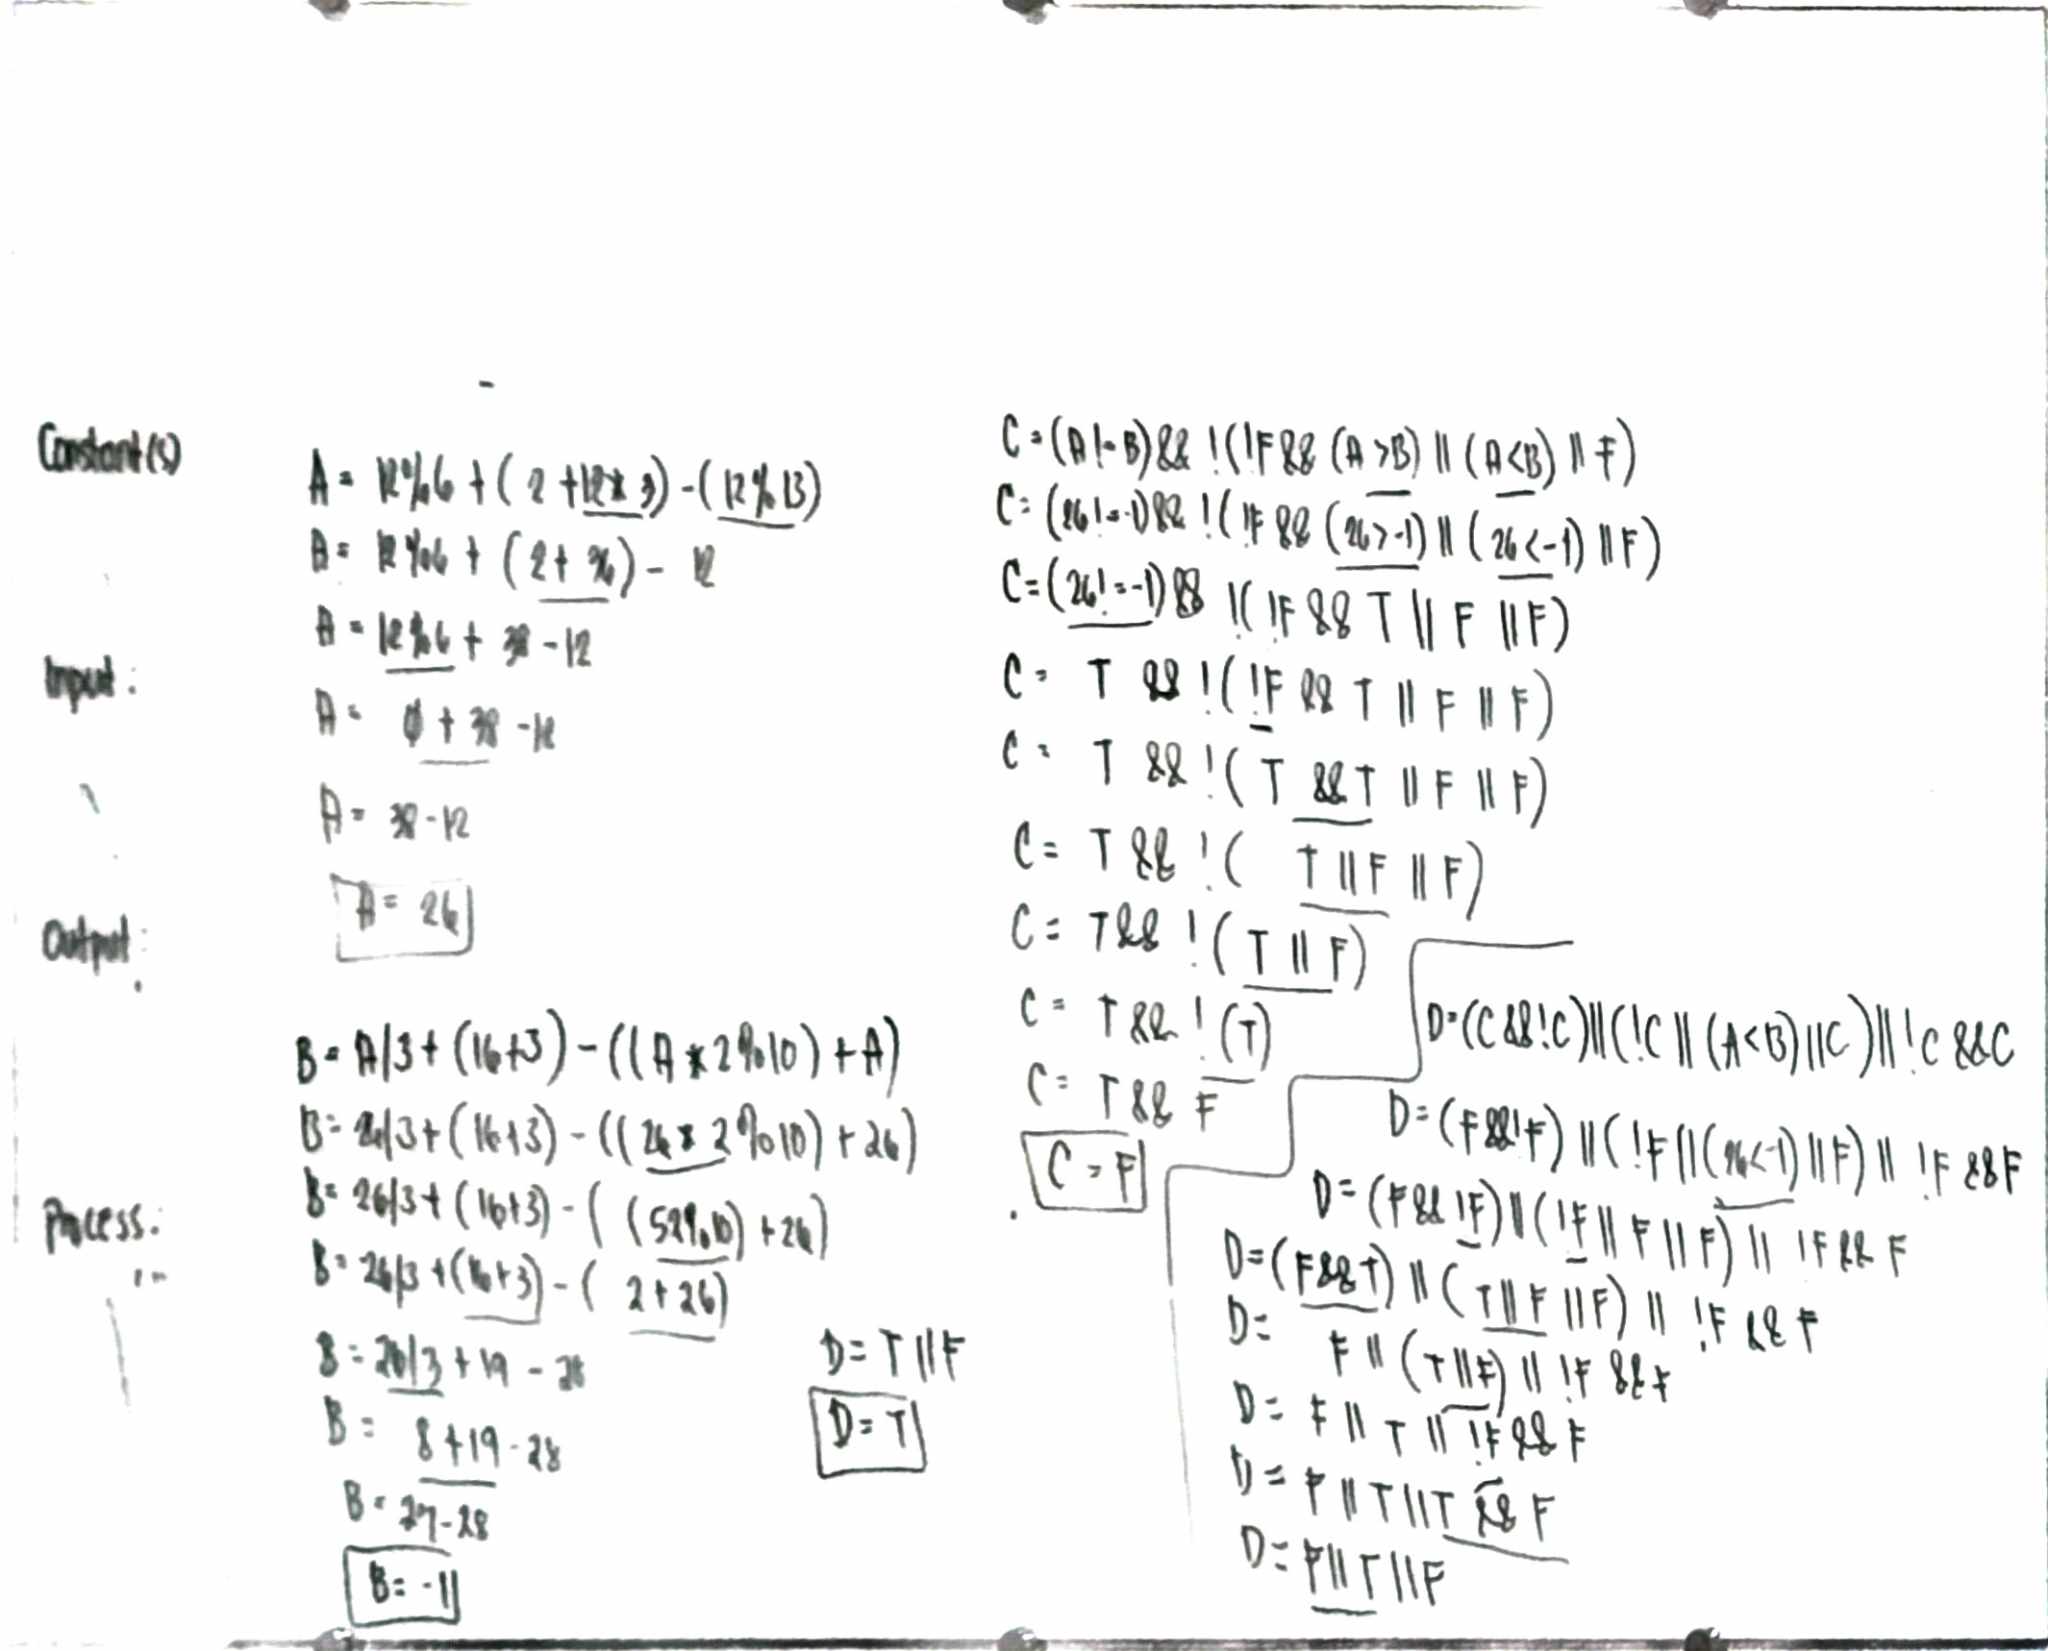 Constant(s)
Input:
Output:
Process:
A = 12%6 + (2 + 12 * 3) - (12%13)
A = 12%6 + (2 + 36) - 12
A = 12%6 + 38 - 12
A = 0 + 38 - 12
A = 38 - 12
A = 26
B = A/3 + (16+3) - ((A * 2%10) + A)
B = 26/3 + (16+3) - ((26 * 2%10) + 26)
B = 26/3 + (16+3) - ((52%10) + 26)
B = 26/3 + (16+3) - (2 + 26)
B = 26/3 + 19 - 28
B = 8 + 19 - 28
B = 27 - 28
B = -1
C = (A != B) && !(!F && (A > B) || (A < B) || F)
C = (26 != -1) && !(!F && (26 > -1) || (26 < -1) || F)
C = (26 != -1) && !(!F && T || F || F)
C = T && !(!F && T || F || F)
C = T && !(T && T || F || F)
C = T && !(T || F || F)
C = T && !(T || F)
C = T && !(T)
C = T && F
C = F
D = (C && !C) || (!C || (A < B) || C) || !C && C
D = (F && !F) || (!F || (26 < -1) || F) || !F && F
D = (F && !F) || (!F || F || F) || !F && F
D = (F && T) || (T || F || F) || !F && F
D = F || (T || F) || !F && F
D = F || T || !F && F
D = F || T || T && F
D = F || T || F
D = T || F
D = T